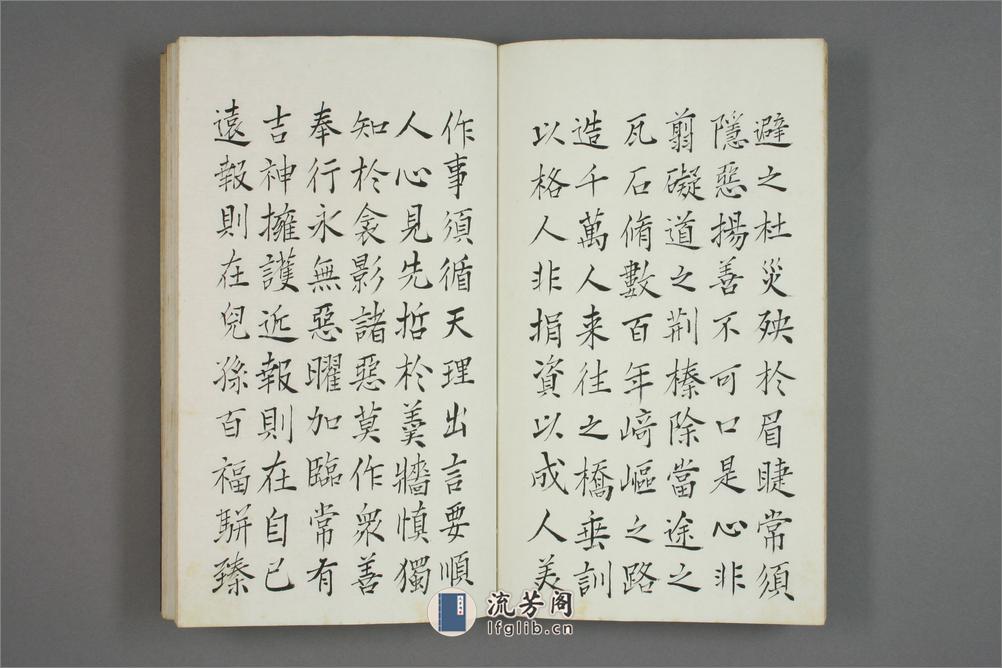 避之杜災殃於眉睫常須
隱惡揚善不可口是心非
翦礙道之荆榛除當途之
瓦石脩數百年﨑嶇之路
造千萬人来往之橋垂訓
以格人非捐資以成人美
作事須循天理出言要順
人心見先哲於羹牆慎獨
知於衾影諸惡莫作衆善
奉行永無惡曜加臨常有
吉神擁護近報則在自己
遠報則在兒孫百福駢臻
流芳阁
lfglib.cn